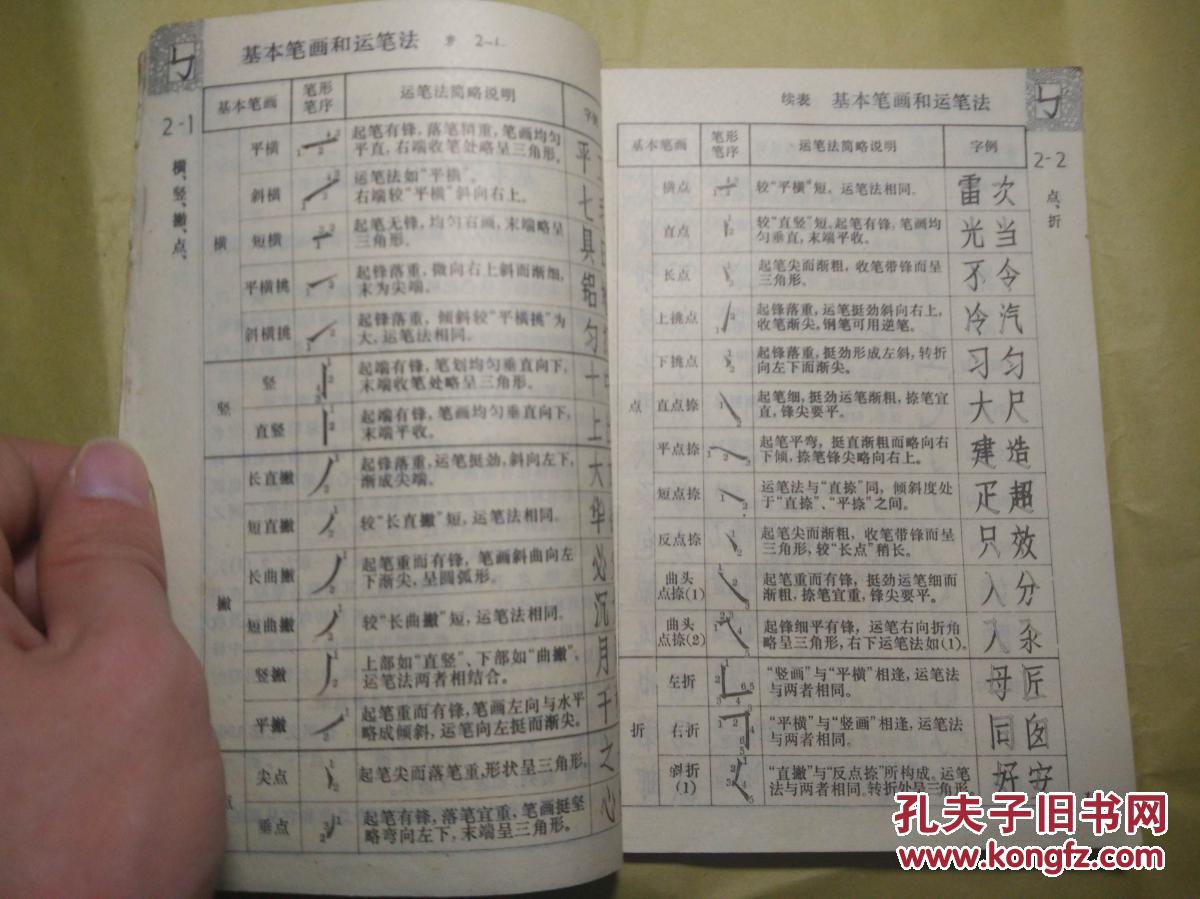 基本笔画和运笔法 2-1
基本笔画 笔形笔序 运笔法简略说明 字例
2-1 横、竖、撇、点、
横
平横 起笔有锋，落笔稍重，笔画均匀
平直，右端收笔处略呈三角形。 平
斜横 运笔法如“平横”。
右端较“平横”斜向右上。 七
短横 起笔无锋，均匀右画，末端略呈
三角形。 具
平横挑 起锋落重，微向右上斜而渐细，
末为尖端。 铭
斜横挑 起锋落重，倾斜较“平横挑”为
大，运笔法相同。 匀
竖
竖 起端有锋，笔划均匀垂直向下，
末端收笔处略呈三角形。 十
直竖 起端有锋，笔画均匀垂直向下，
末端平收。 上
撇
长直撇 起锋落重，运笔挺劲，斜向左下，
渐成尖端。 大
短直撇 较“长直撇”短，运笔法相同。 华
长曲撇 起笔重而有锋，笔画斜曲向左
下渐尖，呈圆弧形。 必
短曲撇 较“长曲撇”短，运笔法相同。 沉
竖撇 上部如“直竖”、下部如“曲撇”，
运笔法两者相结合。 月
平撇 起笔重而有锋，笔画左向与水平
略成倾斜，运笔向左挺而渐尖。 千
尖点 起笔尖而落笔重，形状呈三角形。 之
垂点 起笔有锋，落笔宜重，笔画挺竖
略弯向左下，末端呈三角形。 心
续表 基本笔画和运笔法
基本笔画 笔形笔序 运笔法简略说明 字例
2-2 点、折
点
横点 较“平横”短，运笔法相同。 雷次
直点 较“直竖”短，起笔有锋，笔画均
匀垂直，末端平收。 光当
长点 起笔尖而渐粗，收笔带锋而呈
三角形。 不令
上挑点 起锋落重，运笔挺劲斜向右上，
收笔渐尖，钢笔可用逆笔。 冷汽
下挑点 起锋落重，挺劲形成左斜，转折
向左下而渐尖。 习匀
直点捺 起笔细，挺劲运笔渐粗，捺笔宜
直，锋尖要平。 大尺
平点捺 起笔平弯，挺直渐粗而略向右
下倾，捺笔锋尖略向右上。 建造
短点捺 运笔法与“直捺”同，倾斜度处
于“直捺”、“平捺”之间。 疋超
反点捺 起笔尖而渐粗，收笔带锋而呈
三角形，较“长点”稍长。 只效
曲头点捺(1) 起笔重而有锋，挺劲运笔细而
渐粗，捺笔宜重，锋尖要平。 入分
曲头点捺(2) 起锋细平有锋，运笔右向折角
略呈三角形，右下运笔法如(1)。 入汆
折
左折 “竖画”与“平横”相逢，运笔法
与两者相同。 母匠
右折 “平横”与“竖画”相逢，运笔法
与两者相同。 同囱
斜折(1) “直撇”与“反点捺”所构成。运笔
法与两者相同。转折处呈三角形 好安
孔夫子旧书网
www.kongfz.com